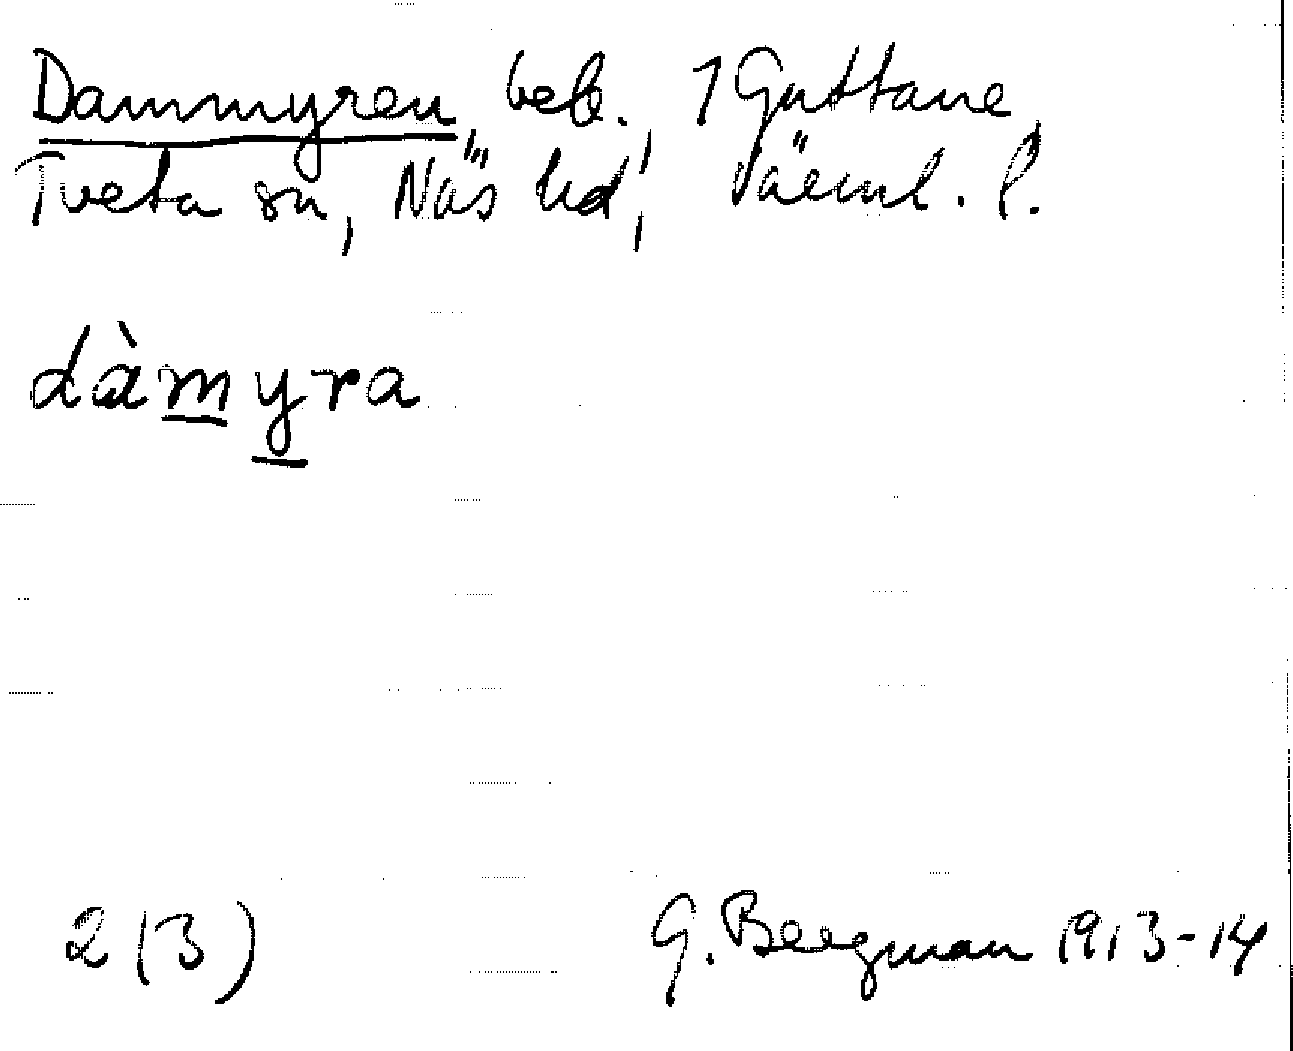 Dammyren, beb. 1 Guttane
Tveta sn, Näs hd, Värml. l.
dàmyra
2 (3) G. Bergman 1913-14